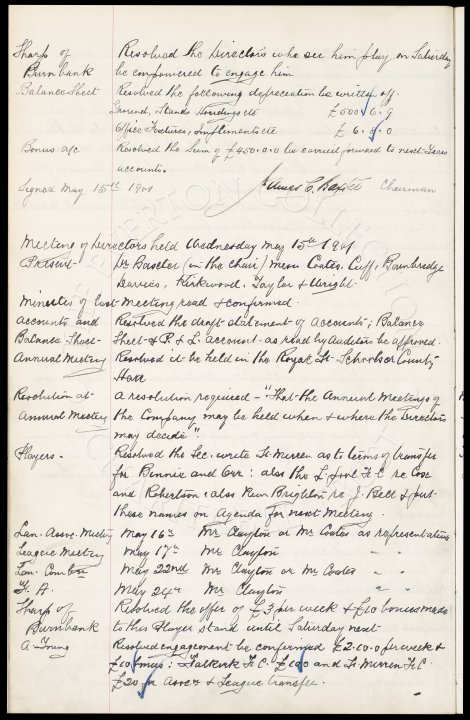 Sharp of Resolved the Directors who see him play on Saturday
Burnbank be empowered to engage him
Balance Sheet Resolved the following depreciation be written off.
Ground, Stands Hoardings etc £500 . 6 . 9
Office Fixtures, Implements etc £ 6 . 8 . 0
Bonus a/c Resolved the Sum of £450.0.0 be carried forward to next Years
accounts.
Signed May 15th 1901 James C. Baxter Chairman
EVERTON COLLECTION
Meeting of Directors held Wednesday May 15th 1901
Present Dr Baxter (in the chair) Messrs Coates, Cuff, Bainbridge
Davies, Kirkwood, Taylor & Wright
Minutes of last Meeting read & confirmed.
Accounts and Resolved the draft statement of Accounts; Balance
Balance Sheet Sheet & P. & L. account as read by Auditors be approved.
Annual Meeting Resolved it be held in the Royal St. Schools or County
Hall
Resolution at A resolution required - "That the Annual Meetings of
Annual Meeting the Company may be held when & where the Directors
may decide."
Players - Resolved the Sec. write St. Mirren as to terms of transfer
for Binnie and Orr: also the L'pool F.C. re Cox
and Robertson: also New Brighton re J. Bell & put
these names on Agenda for next Meeting.
Lan. Assoc. Meeting May 16th Mr Clayton or Mr Coates as representatives
League Meeting May 17th Mr Clayton " "
Lan. Combn May 22nd Mr Clayton or Mr Coates " "
F. A. May 24th Mr Clayton " "
Sharp of Resolved the offer of £3 per week & £10 bonus made
Burnbank to this Player stand until Saturday next
A Young Resolved engagement be confirmed £2.10.0 per week &
£10 bonus: Falkirk F.C. £100 and St Mirren F.C.
£20 for Assocn & League transfer.